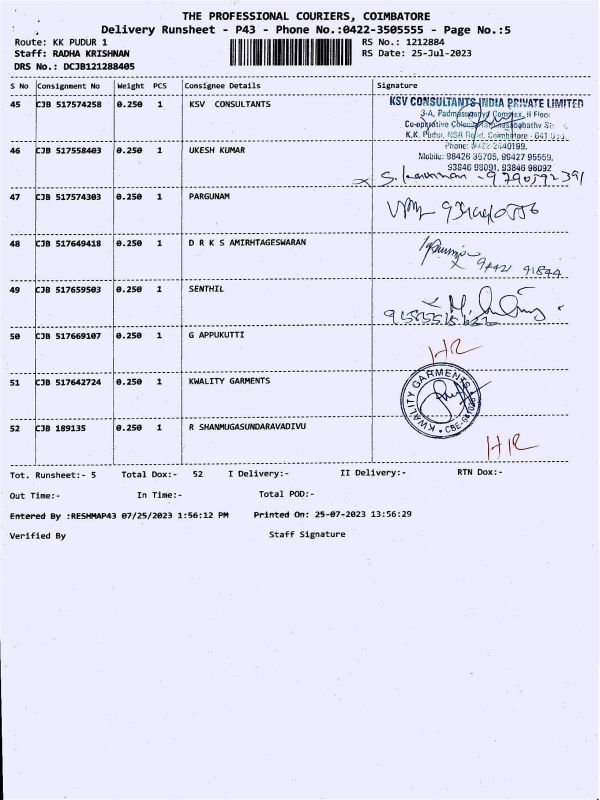 THE PROFESSIONAL COURIERS, COIMBATORE
Delivery Runsheet - P43 - Phone No.:0422-3505555 - Page No.:5
Route: KK PUDUR 1 RS No.: 1212884
Staff: RADHA KRISHNAN RS Date: 25-Jul-2023
DRS No.: DCJB121288405
S No Consignment No Weight PCS Consignee Details Signature
45 CJB 517574258 0.250 1 KSV CONSULTANTS
KSV CONSULTANTS INDIA PRIVATE LIMITED
3-A, Padmasugathi Complex, II Floor
Co-operative Colony
K.K. Pudur, NSR Road, Coimbatore - 641
Phone: 0422-2440199,
Mobile: 98426 35705, 99427 95559,
93846 98091, 93846 98092
46 CJB 517558403 0.250 1 UKESH KUMAR
9790592391
47 CJB 517574303 0.250 1 PARGUNAM
48 CJB 517649418 0.250 1 D R K S AMIRHTAGESWARAN
9442 91844
49 CJB 517659503 0.250 1 SENTHIL
50 CJB 517669107 0.250 1 G APPUKUTTI
51 CJB 517642724 0.250 1 KWALITY GARMENTS
KWALITY GARMENTS
52 CJB 189135 0.250 1 R SHANMUGASUNDARAVADIVU
Tot. Runsheet:- 5 Total Dox:- 52 I Delivery:- II Delivery:- RTN Dox:-
Out Time:- In Time:- Total POD:-
Entered By :RESHMAP43 07/25/2023 1:56:12 PM Printed On: 25-07-2023 13:56:29
Verified By Staff Signature